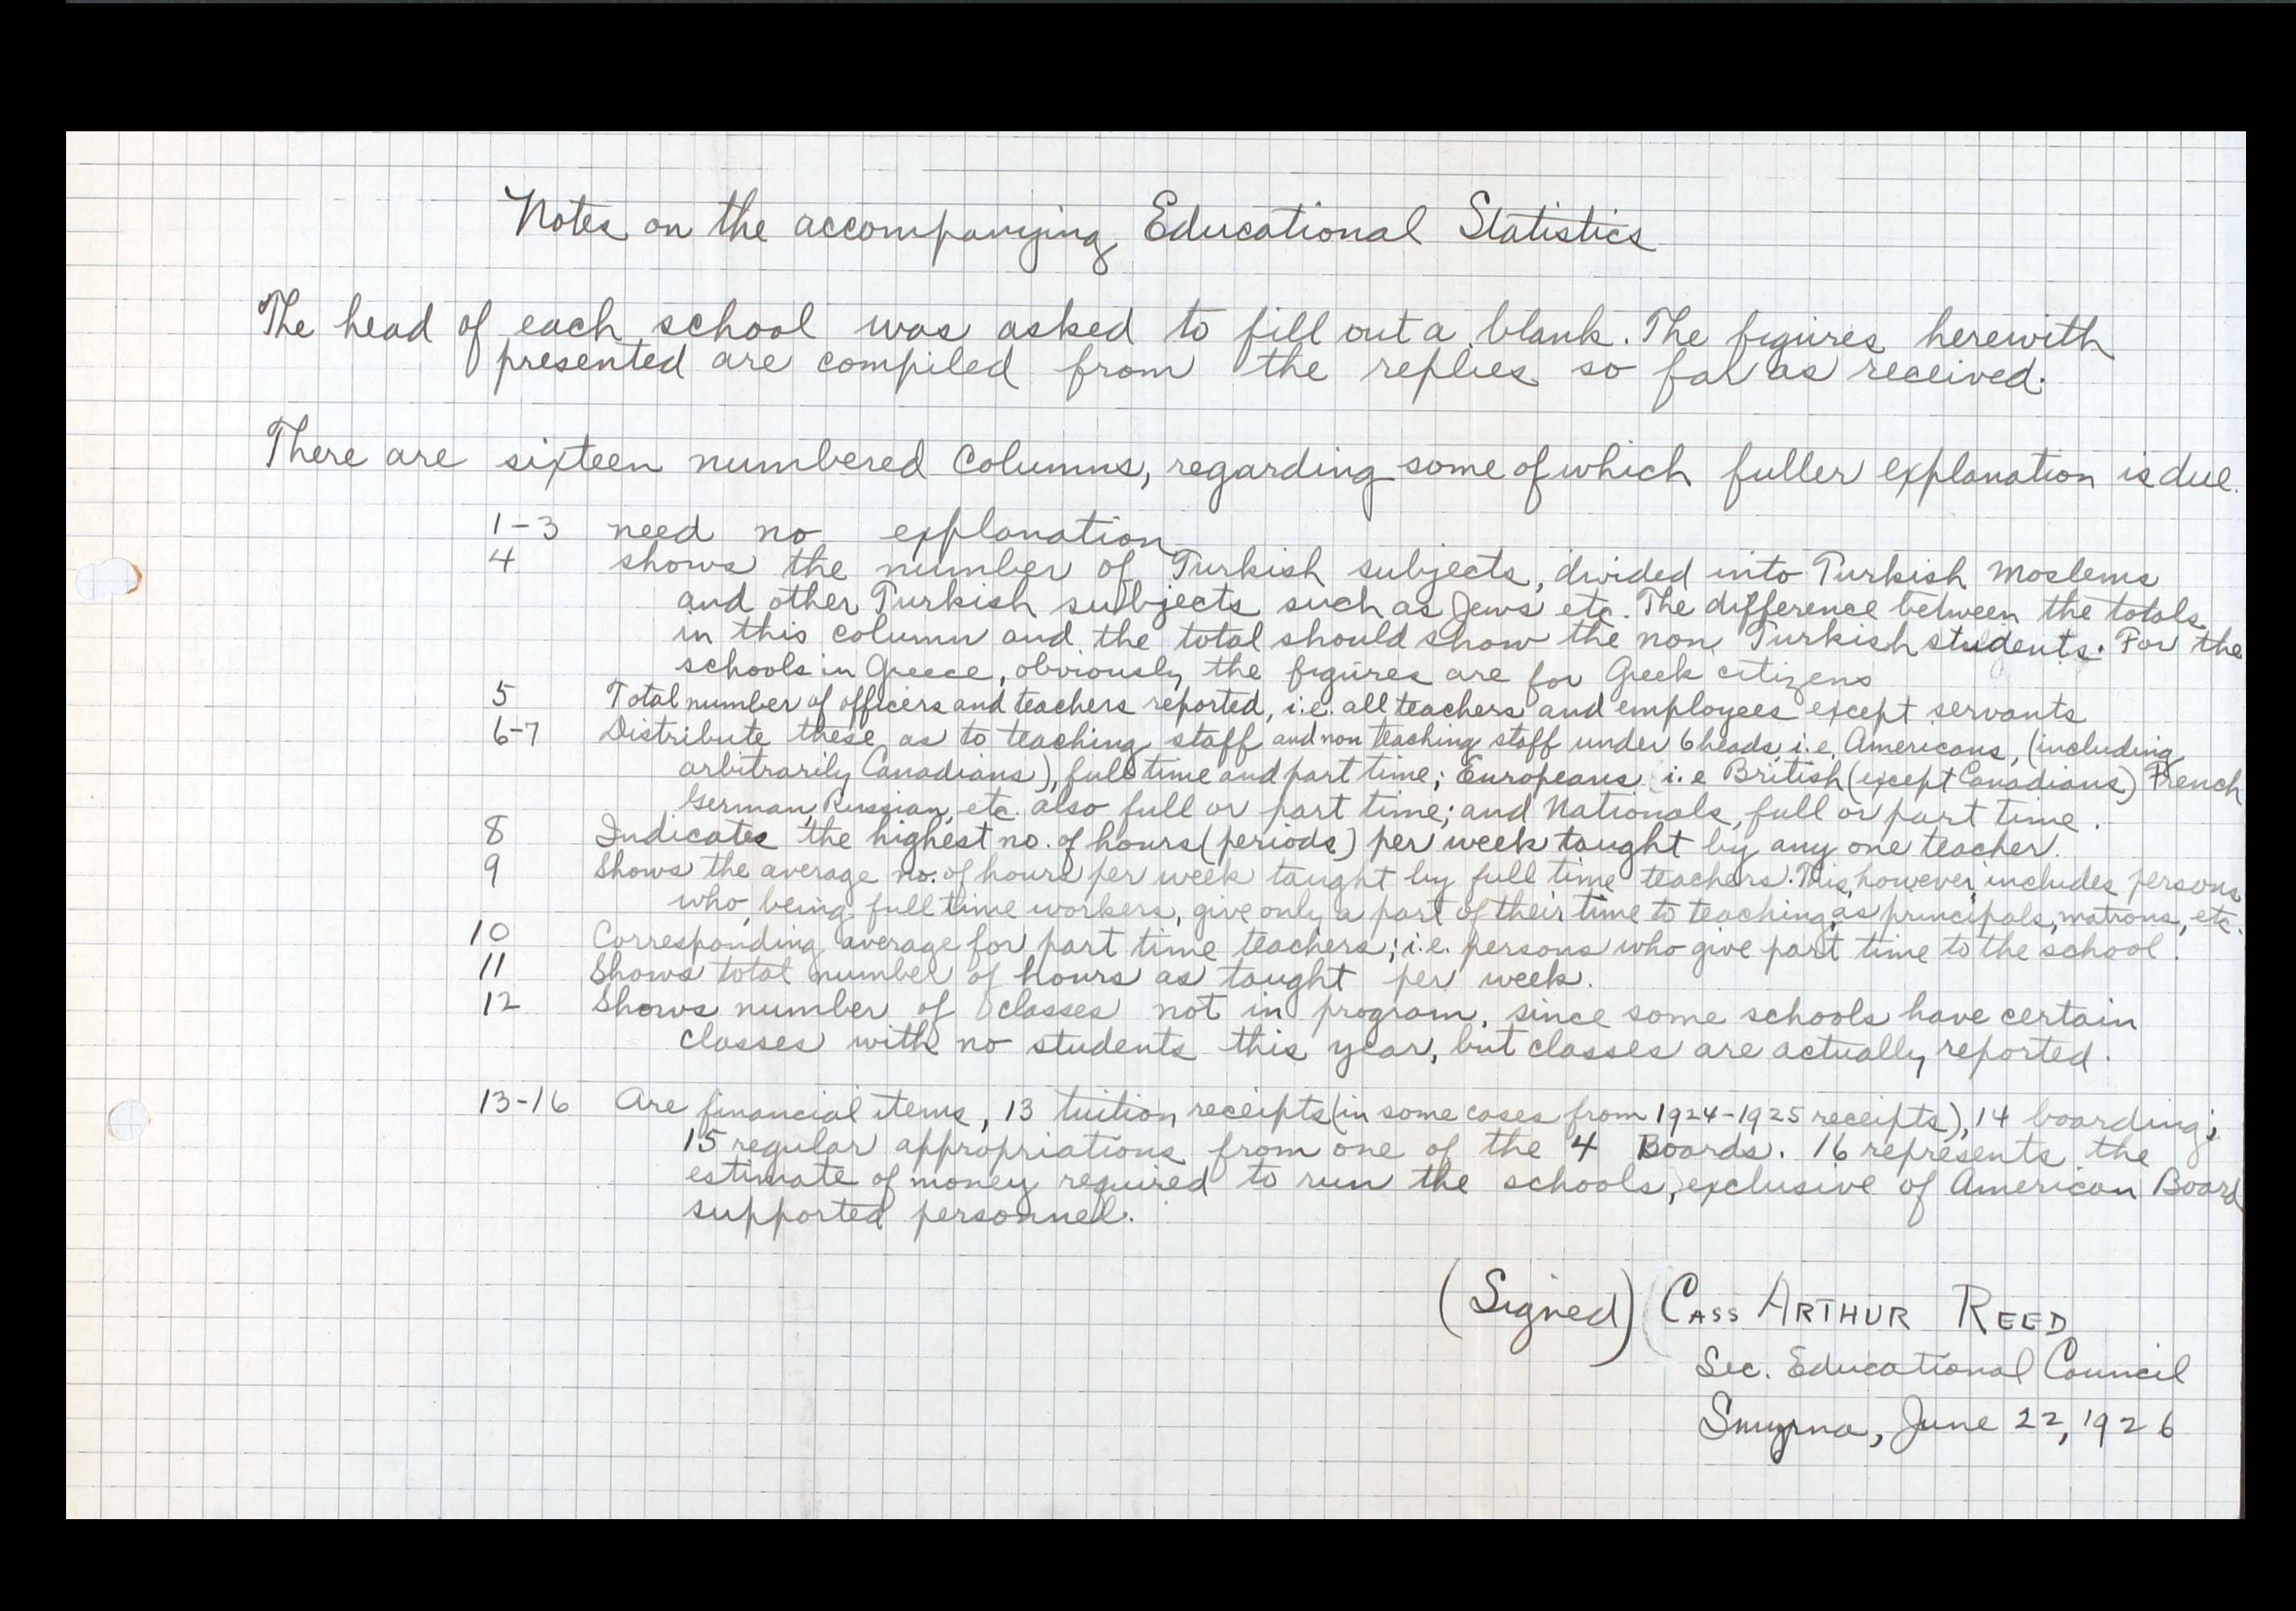 Notes on the accompanying Educational Statistics
The head of each school was asked to fill out a blank. The figures herewith
presented are compiled from the replies so far as received.
There are sixteen numbered columns, regarding some of which fuller explanation is due.
1-3 need no explanation
4 shows the number of Turkish subjects, divided into Turkish Moslems
and other Turkish subjects such as Jews etc. The difference between the totals
in this column and the total should show the non Turkish students. For the
schools in Greece, obviously the figures are for Greek citizens
5 Total number of officers and teachers reported, i.e. all teachers and employees except servants
6-7 Distribute these as to teaching staff and non teaching staff under 6 heads, i.e. Americans, (including
arbitrarily Canadians), full time and part time; Europeans i.e British (except Canadians) French
German, Russian, etc. also full or part time; and Nationals, full or part time.
8 Indicates the highest no. of hours (periods) per week taught by any one teacher.
9 Shows the average no. of hours per week taught by full time teachers. This, however, includes persons
who, being full time workers, give only a part of their time to teaching, as principals, matrons, etc.
10 Corresponding average for part time teachers; i.e. persons who give part time to the school.
11 Shows total number of hours as taught per week.
12 Shows number of classes not in program, since some schools have certain
classes with no students this year, but classes are actually reported.
13-16 Are financial items, 13 tuition receipts (in some cases from 1924-1925 receipts), 14 boarding;
15 regular appropriations from one of the 4 Boards. 16 represents the
estimate of money required to run the schools, exclusive of American Board
supported personnel.
(Signed) CASS ARTHUR REED
Sec. Educational Council
Smyrna, June 22, 1926